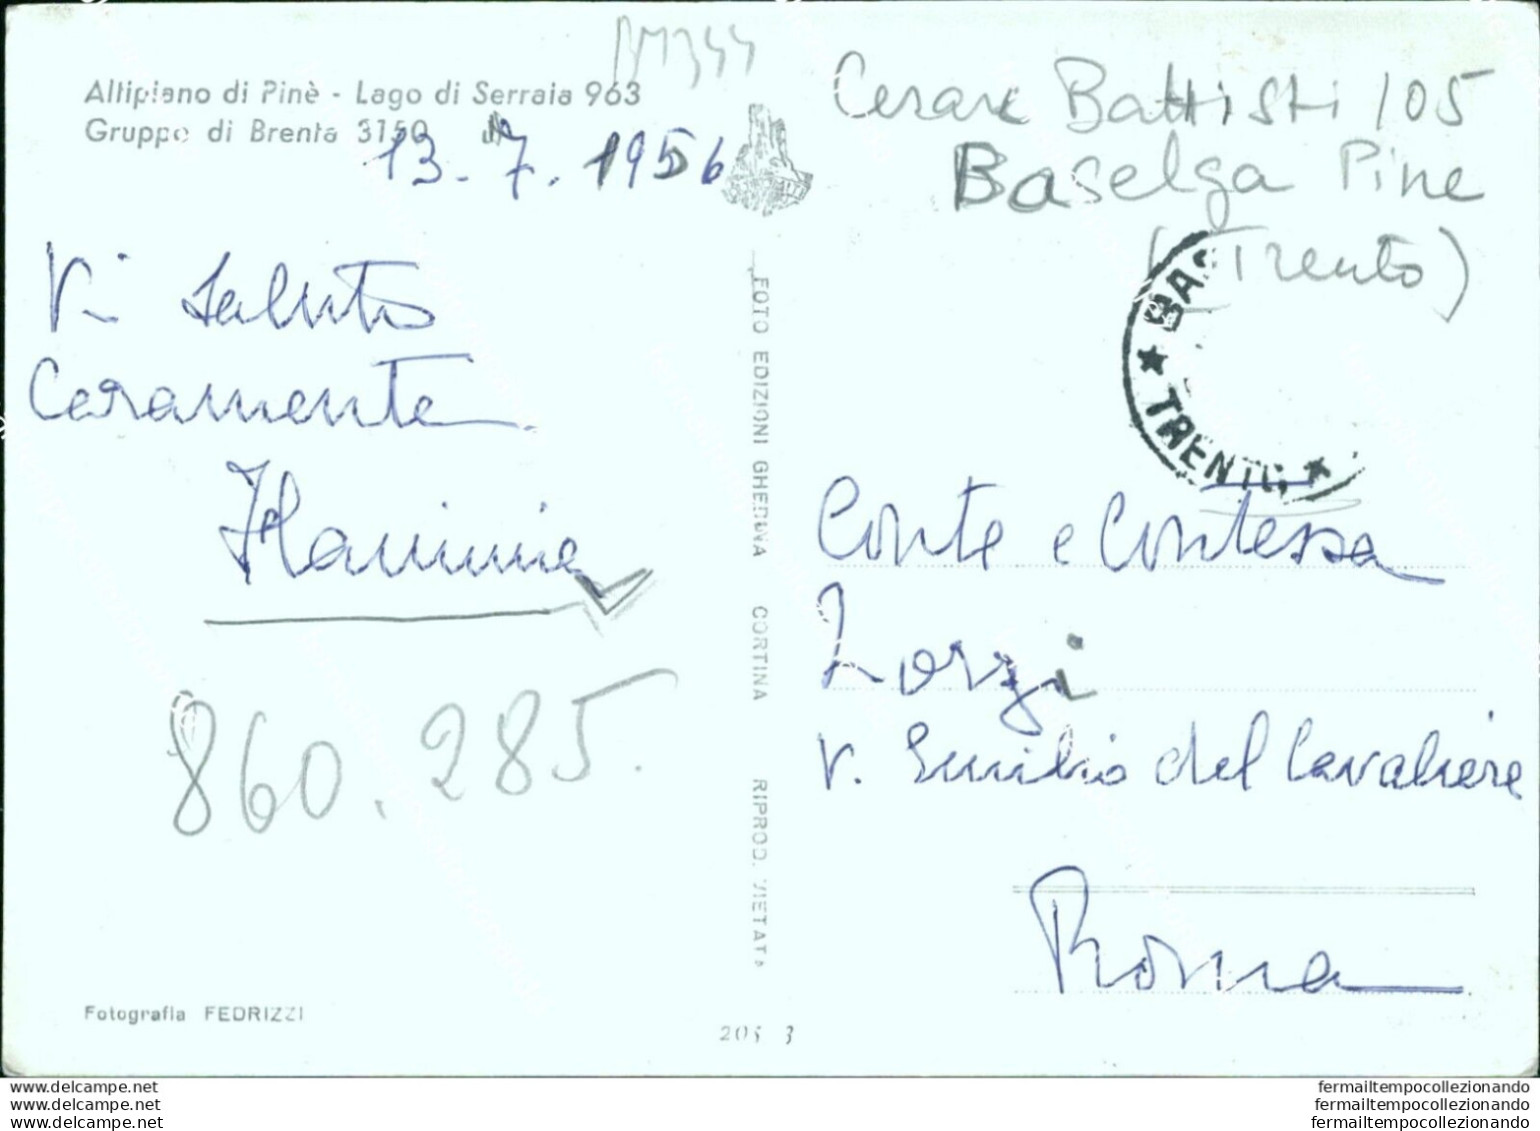 BM344
Altipiano di Pinè - Lago di Serraia 963
Gruppo di Brenta 3150
13.7.1956
Vi saluto
Caramente
Flaminia
860.285.
Fotografia FEDRIZZI
FOTO EDIZIONI GHEDINA CORTINA RIPROD. VIETATA
205 3
Cesare Battisti 105
Baselga Pine
(Trento)
BAS
★ TRENTO ★
Conte e Contessa
Zorzi
V. Emilio del Cavaliere
Roma
www.delcampe.net
www.delcampe.net
www.delcampe.net
fermailtempocollezionando
fermailtempocollezionando
fermailtempocollezionando